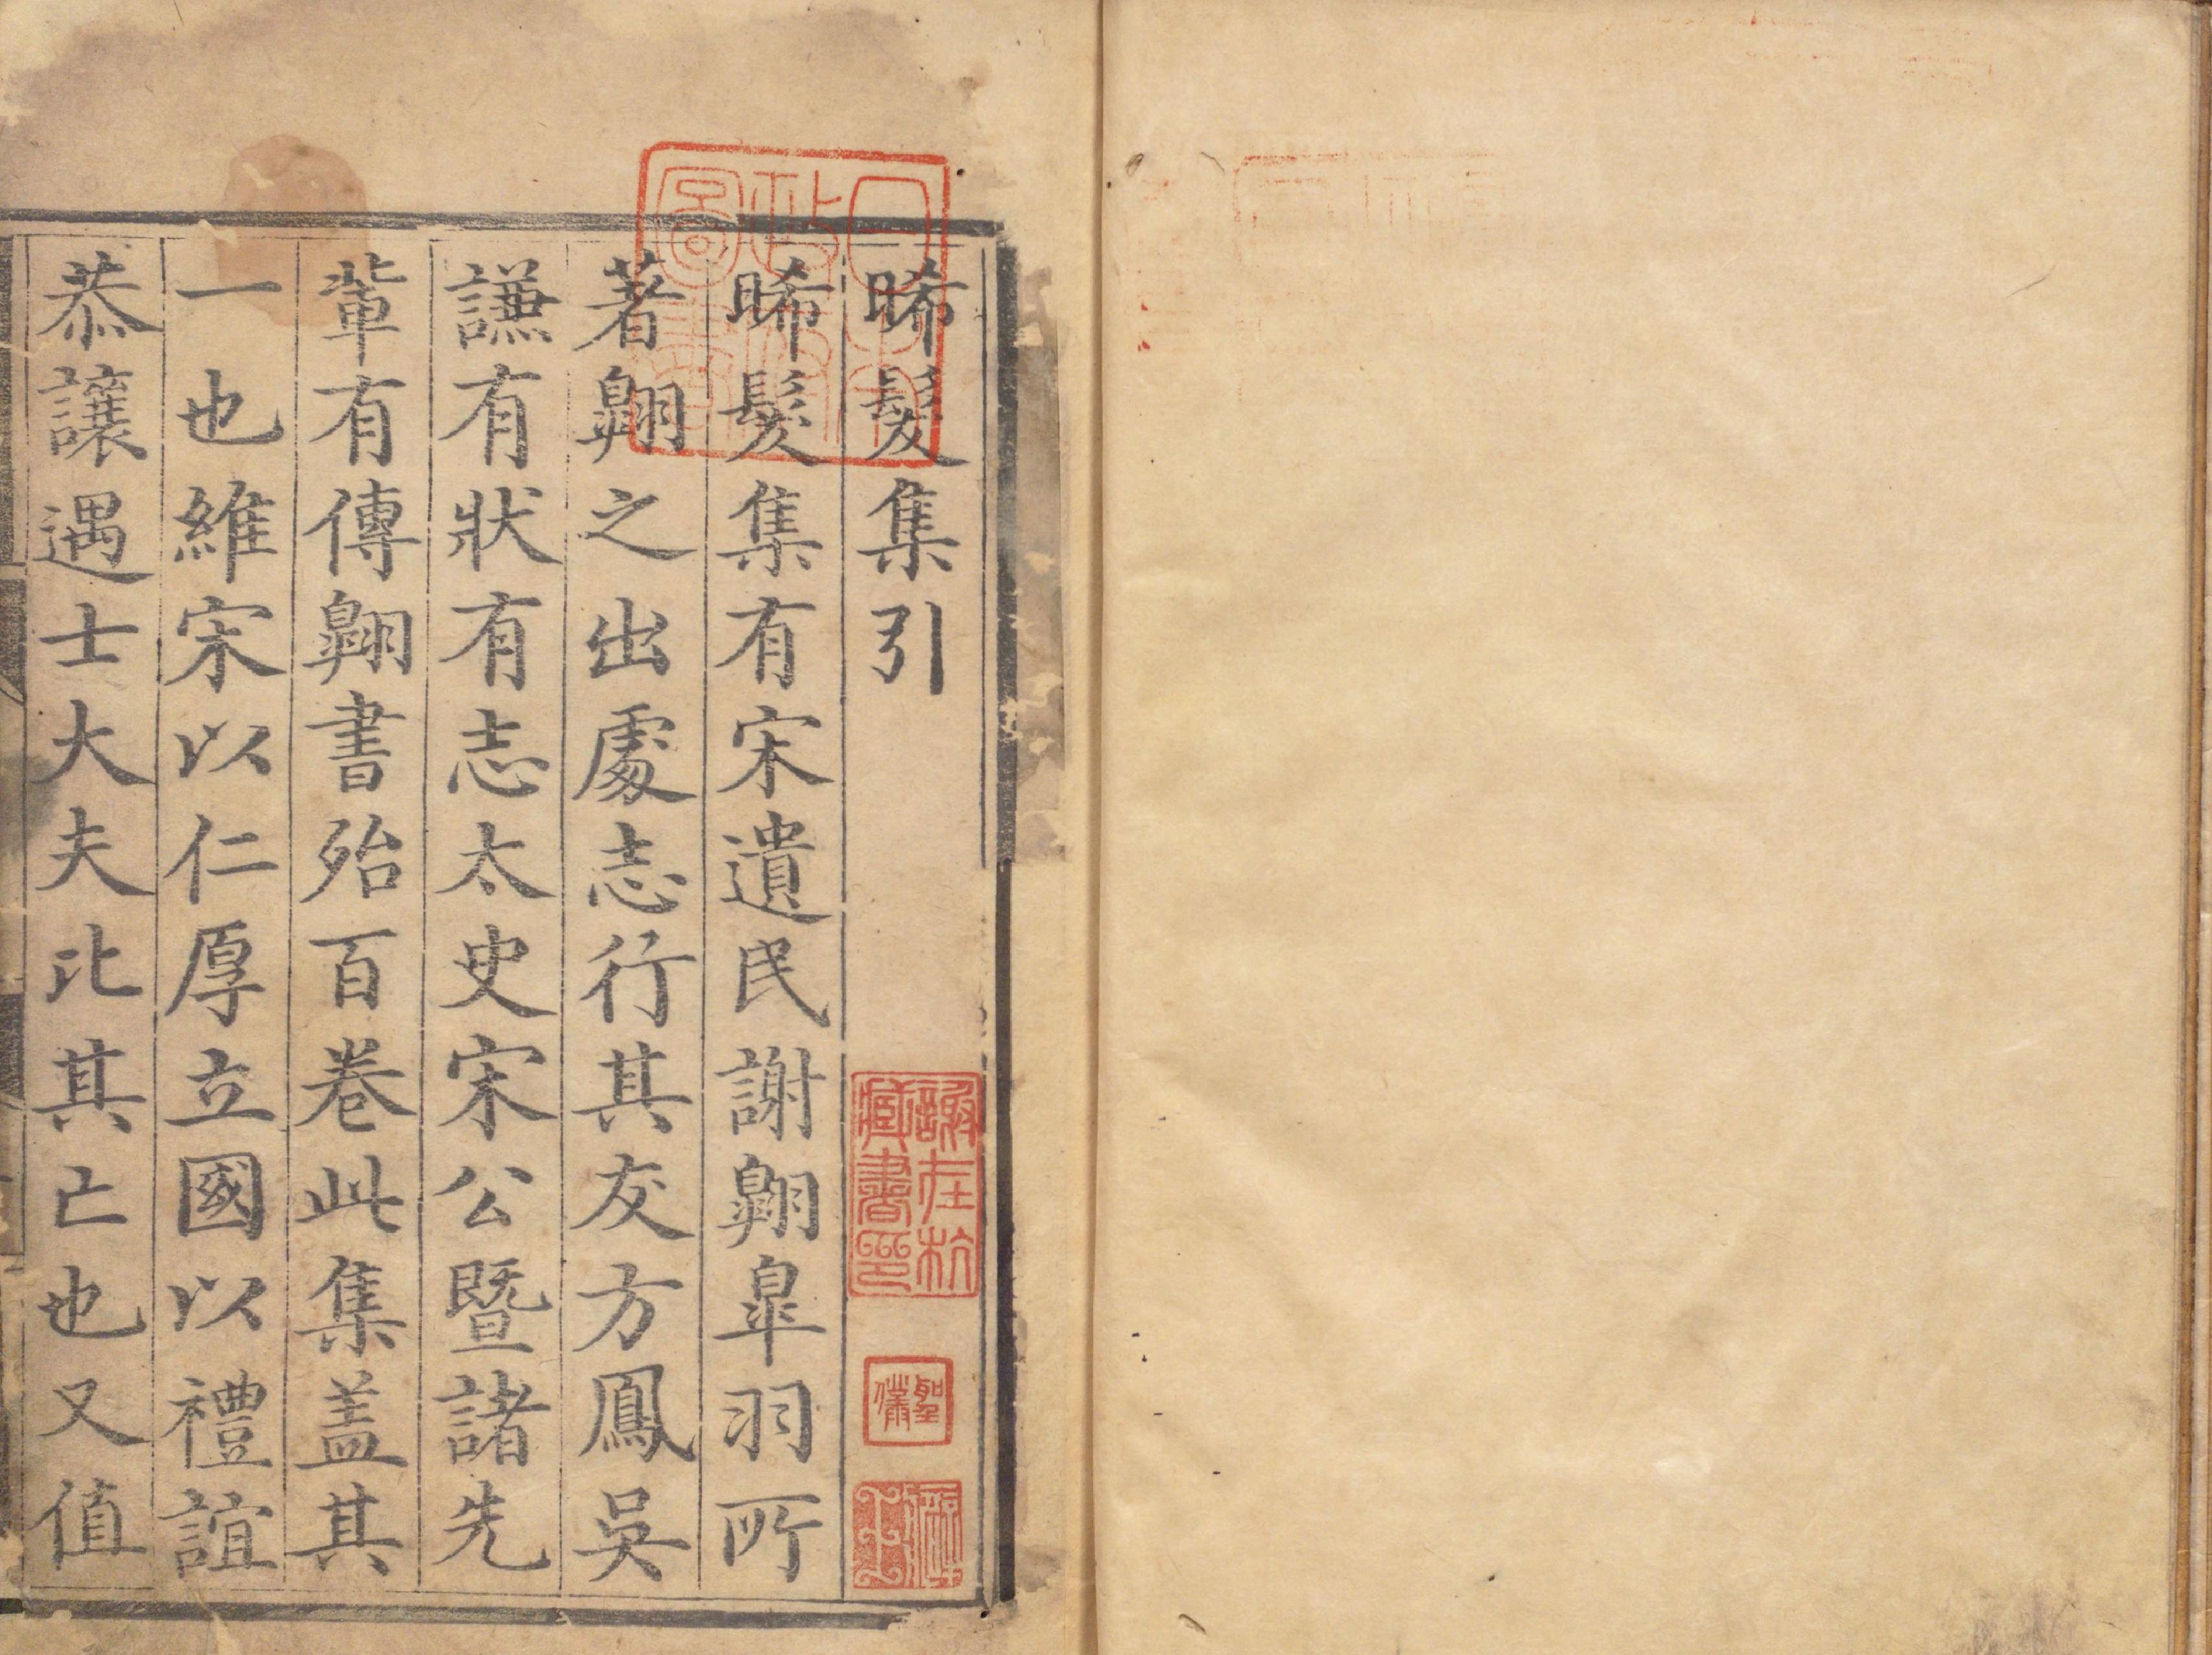 晞髮集引
晞髮集有宋遺民謝翺皐羽所
著翺之出處志行其友方鳳吳
謙有狀有志太史宋公暨諸先
軰有傳翺書殆百巻此集盖其
一也維宋以仁厚立國以禮誼
恭讓遇士大夫比其亡也又值
謝在杭
藏書印